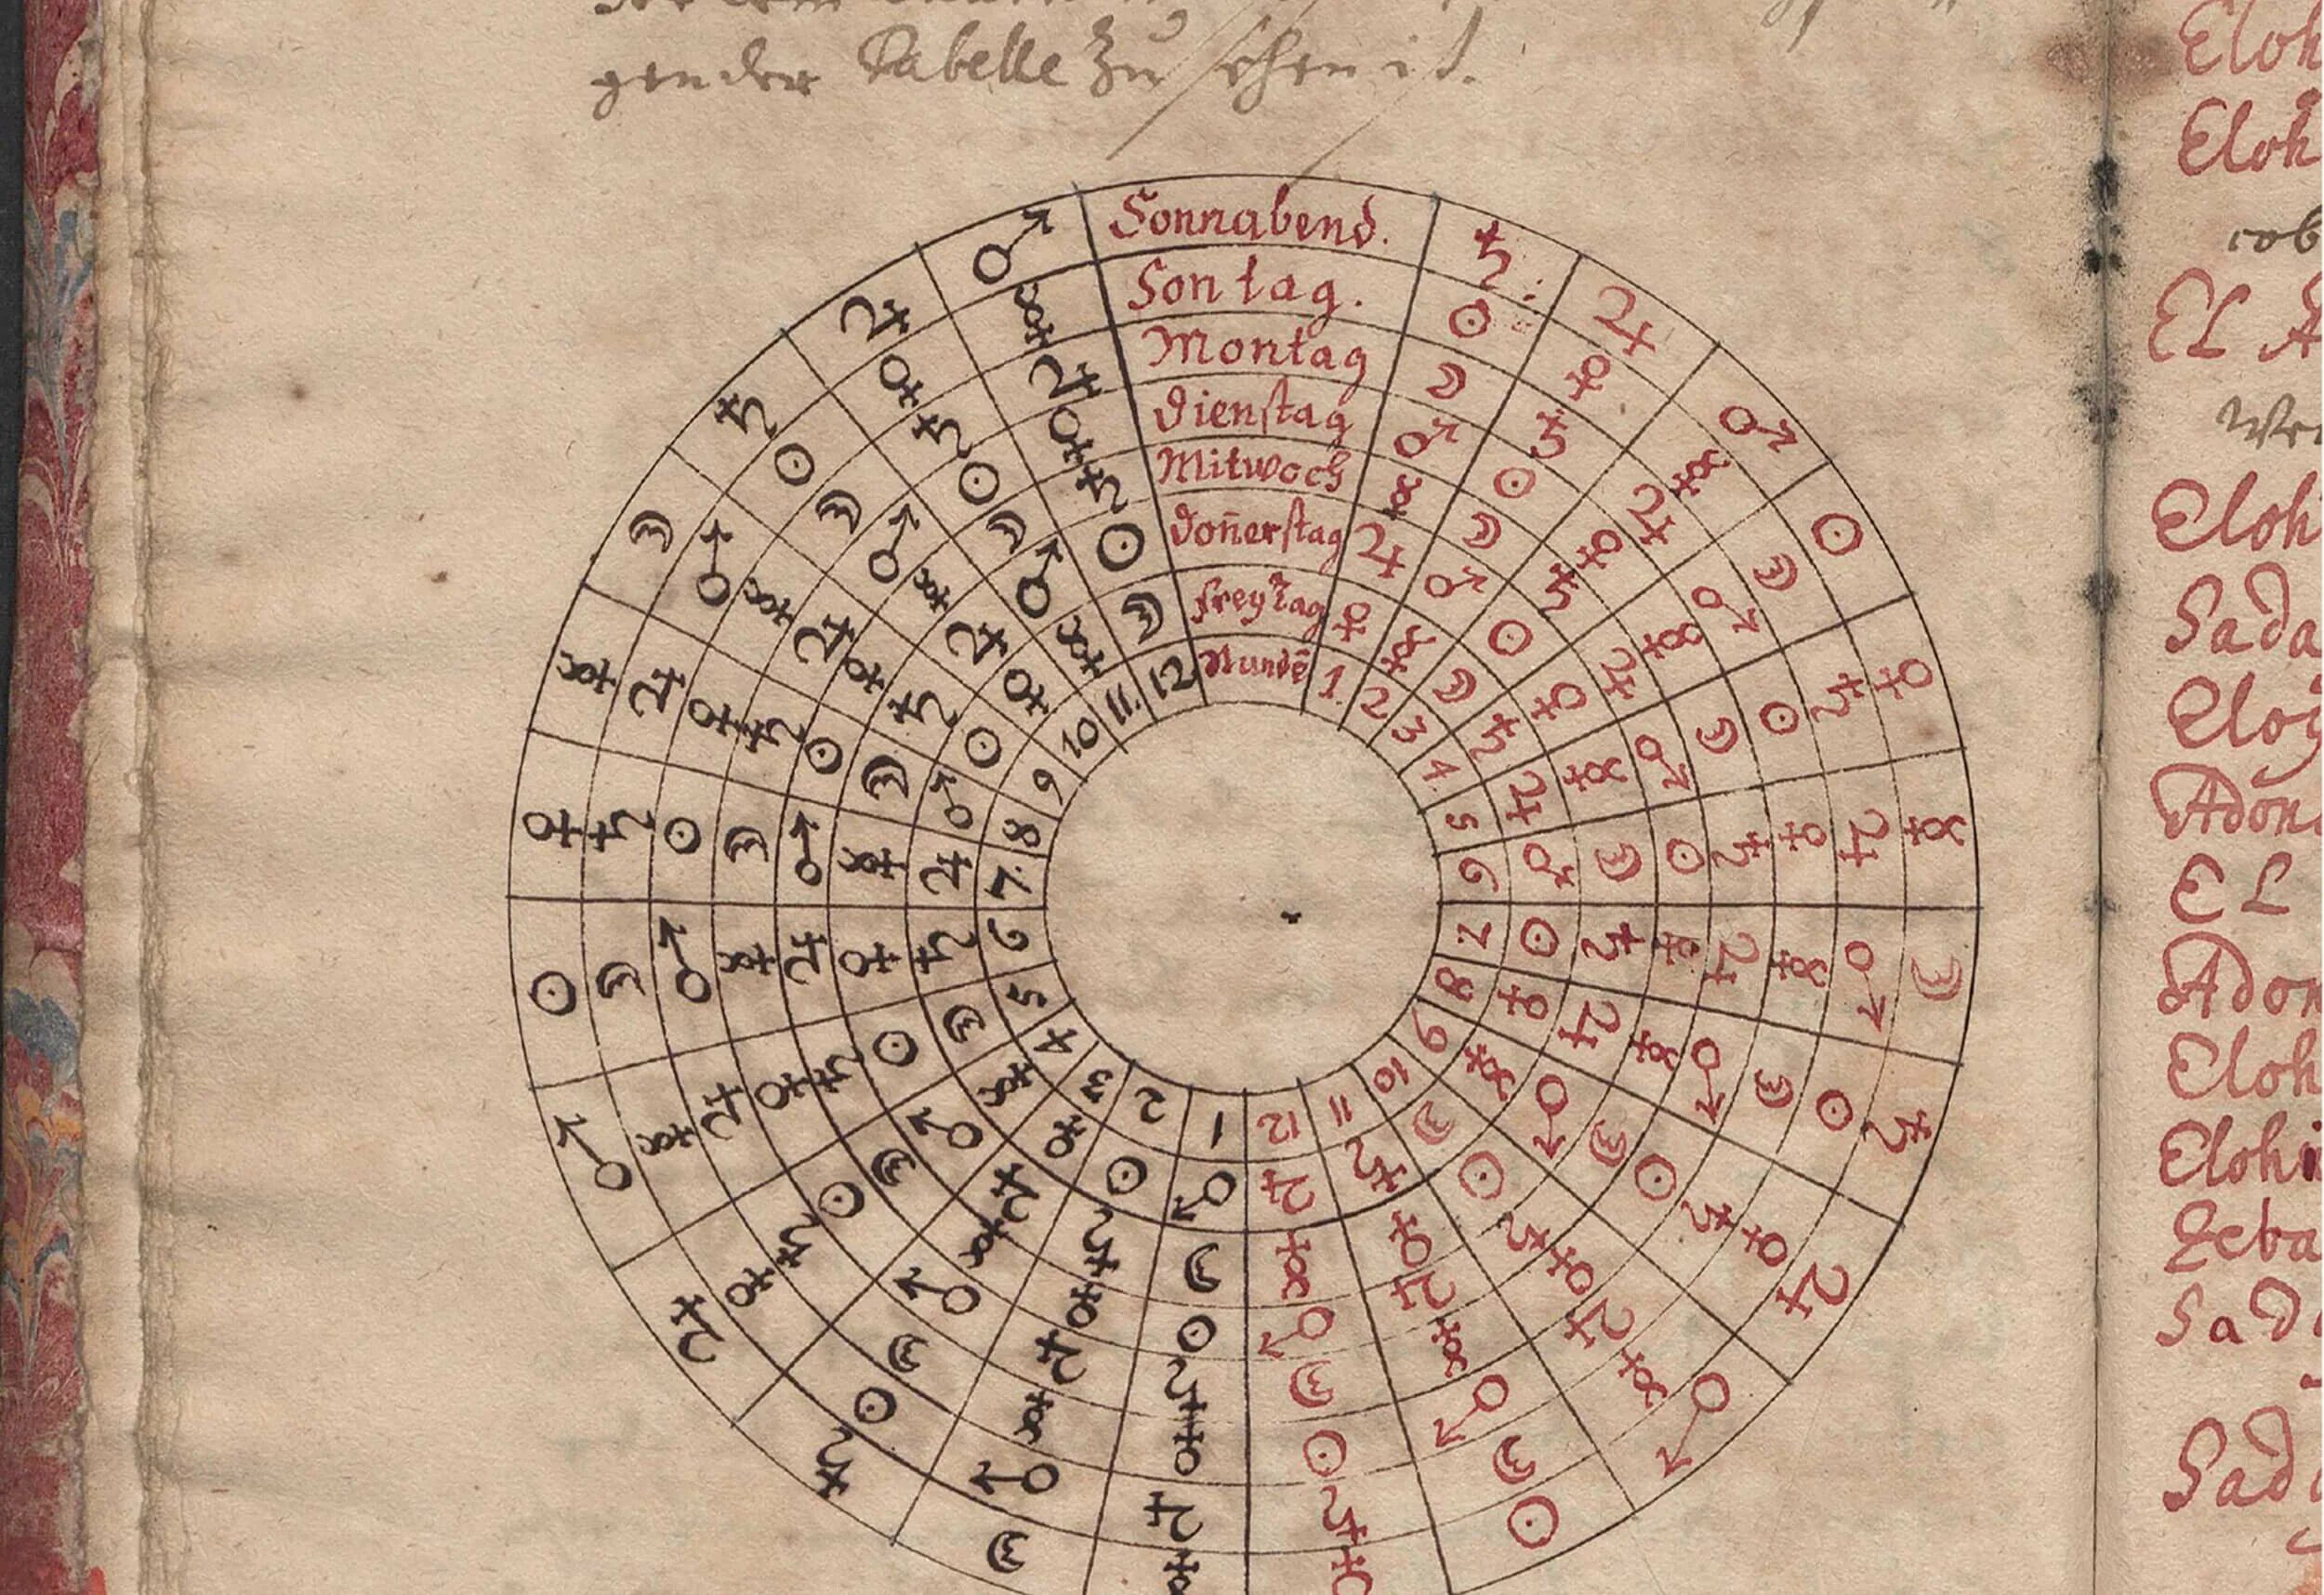 gender Tabelle zu sehen ist.
Sonnabend. ♄ ♃ ♂ ☉ ♀ ☿ ☽ ♄ ♃ ♂ ☉ ♀ ☿ ☽ ♄ ♃ ♂ ☉ ♀ ☿ ☽ ♄ ♃ ♂
Sontag. ☉ ♀ ☿ ☽ ♄ ♃ ♂ ☉ ♀ ☿ ☽ ♄ ♃ ♂ ☉ ♀ ☿ ☽ ♄ ♃ ♂ ☉ ♀ ☿
Montag ☽ ♄ ♃ ♂ ☉ ♀ ☿ ☽ ♄ ♃ ♂ ☉ ♀ ☿ ☽ ♄ ♃ ♂ ☉ ♀ ☿ ☽ ♄ ♃
Dienstag ♂ ☉ ♀ ☿ ☽ ♄ ♃ ♂ ☉ ♀ ☿ ☽ ♄ ♃ ♂ ☉ ♀ ☿ ☽ ♄ ♃ ♂ ☉ ♀
Mitwoch ☿ ☽ ♄ ♃ ♂ ☉ ♀ ☿ ☽ ♄ ♃ ♂ ☉ ♀ ☿ ☽ ♄ ♃ ♂ ☉ ♀ ☿ ☽ ♄
Don̄erstag ♃ ♂ ☉ ♀ ☿ ☽ ♄ ♃ ♂ ☉ ♀ ☿ ☽ ♄ ♃ ♂ ☉ ♀ ☿ ☽ ♄ ♃ ♂ ☉
Freytag ♀ ☿ ☽ ♄ ♃ ♂ ☉ ♀ ☿ ☽ ♄ ♃ ♂ ☉ ♀ ☿ ☽ ♄ ♃ ♂ ☉ ♀ ☿ ☽
Stundē 1. 2 3 4. 5 6 7. 8 9 10 11 12 1 2 3 4 5 6 7. 8 9 10 11. 12
Eloh
Eloh
EL
Eloh
Sada
Adon
EL
Adon
Eloh
Elohi
Zeba
Sad
Sad